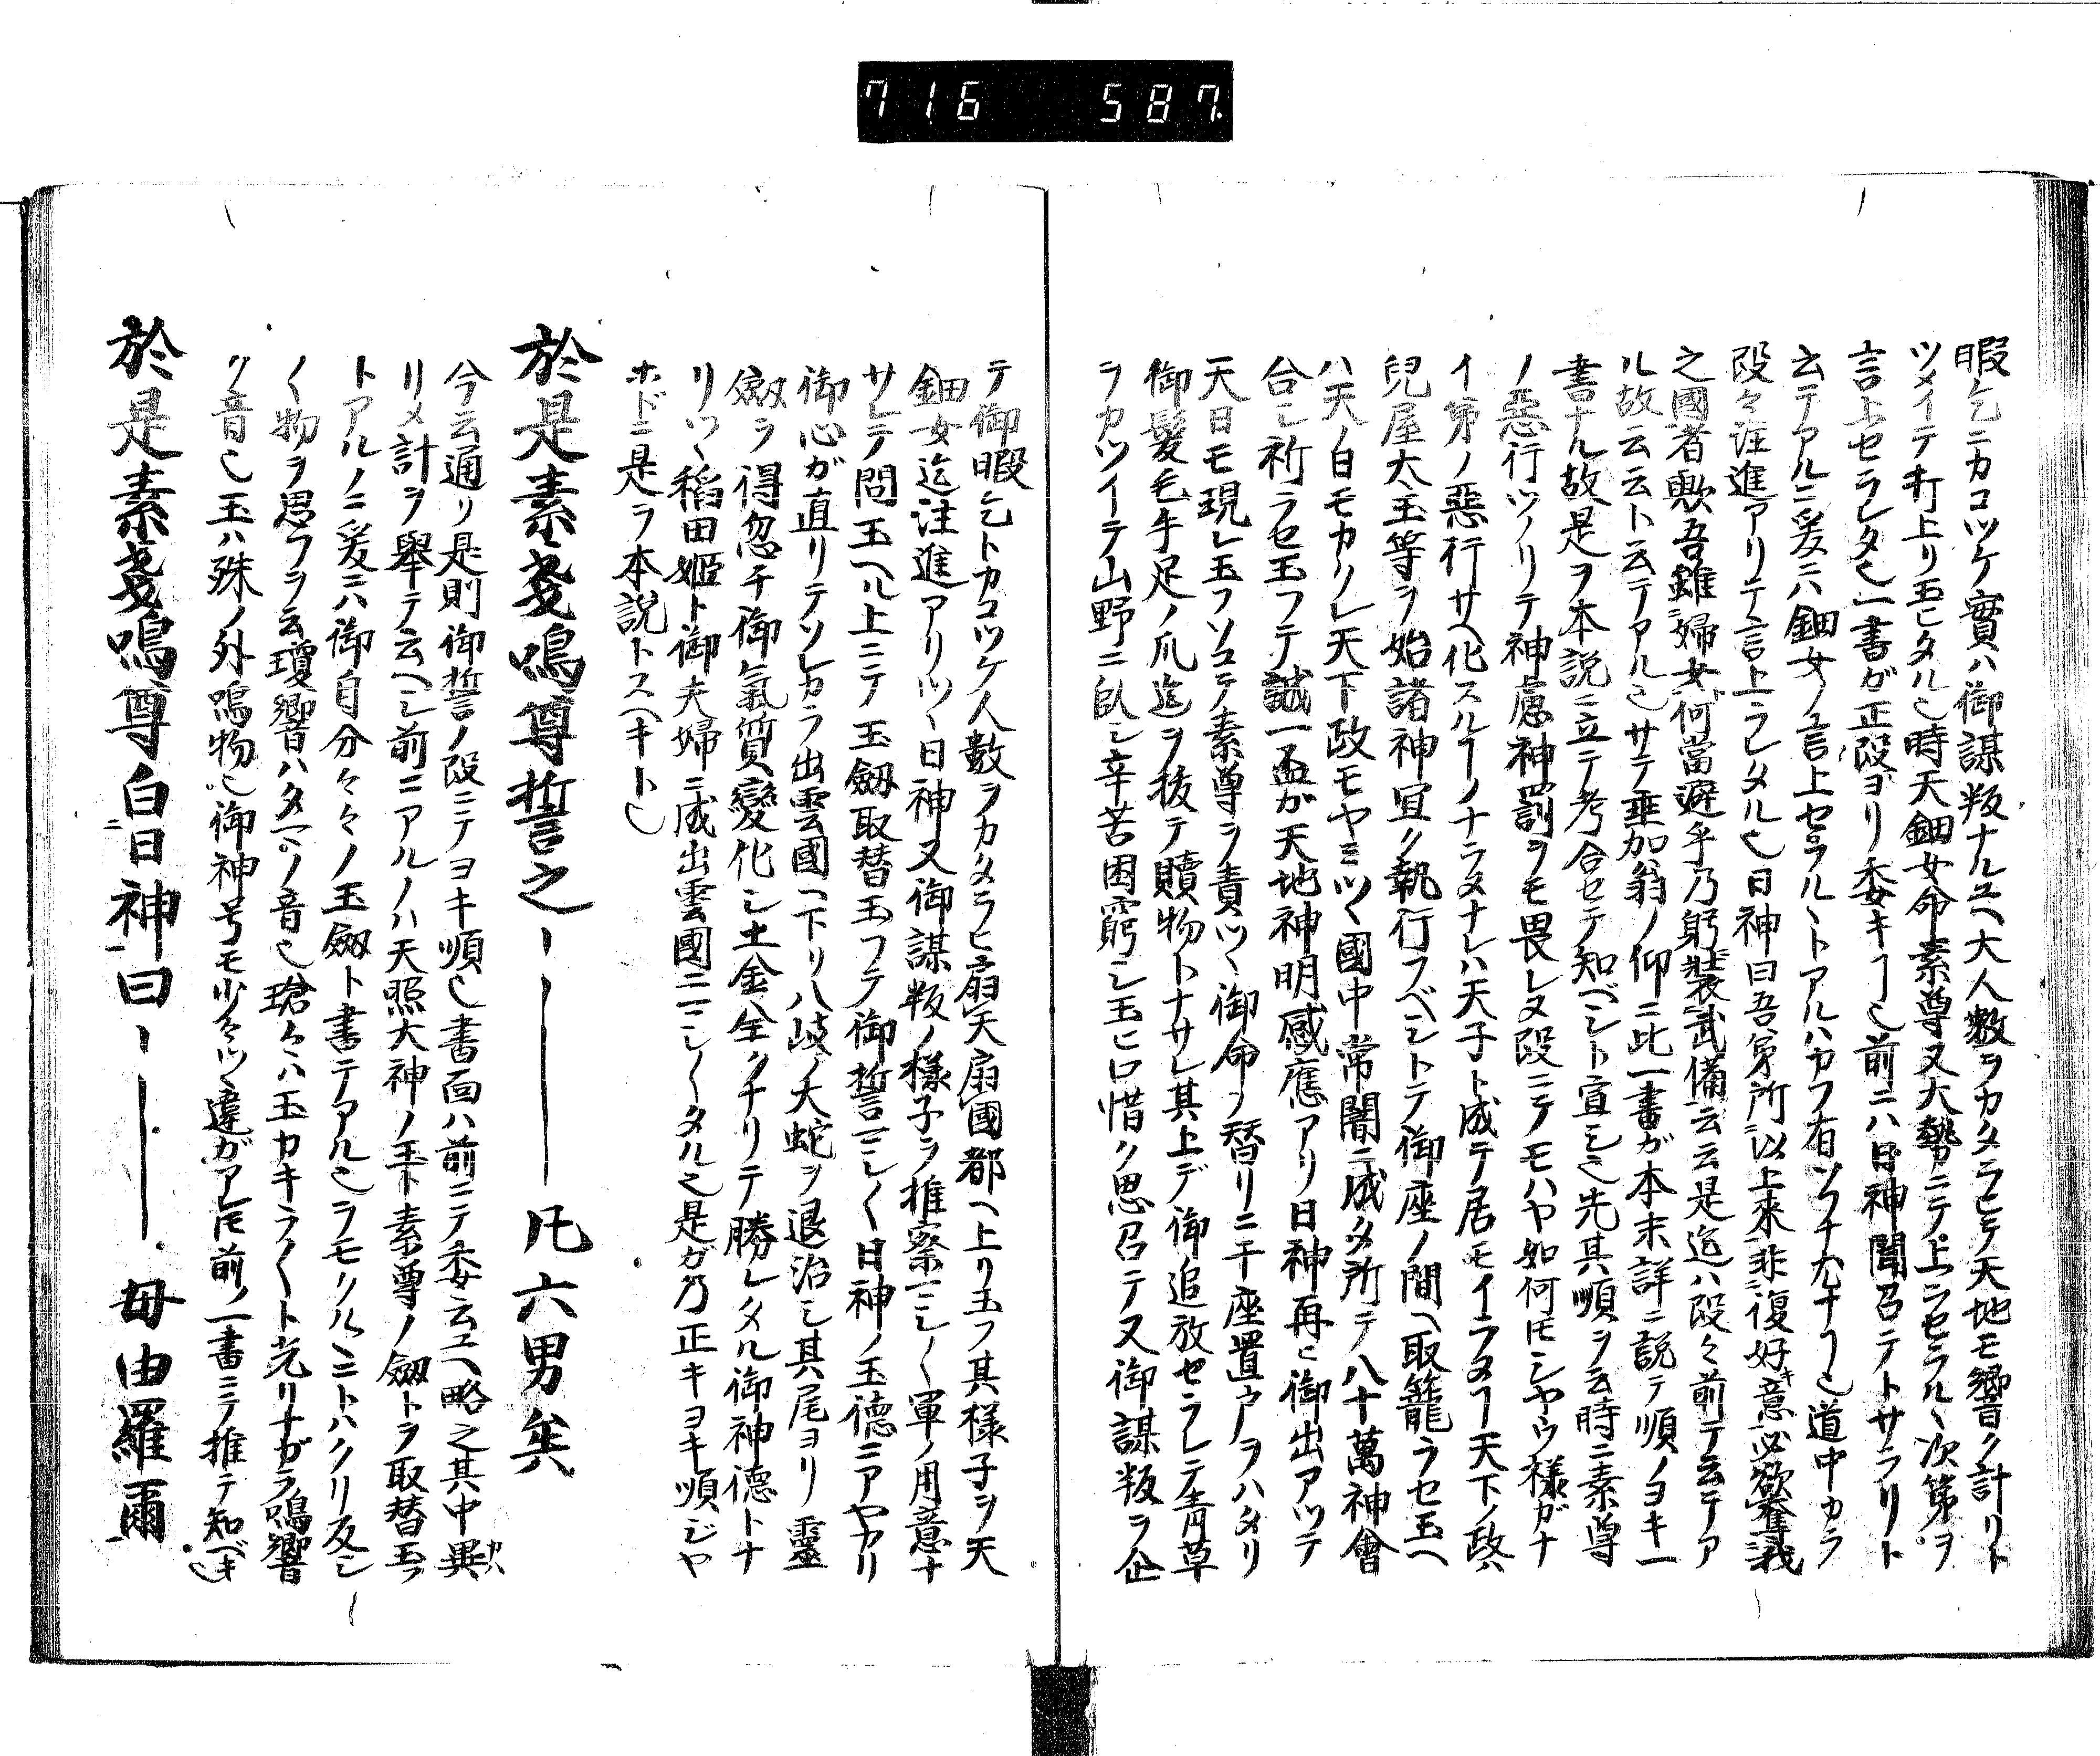 716 587
暇乞ニカコツケ實ハ御謀叛ナルユヘ大人數ヲカタラヒテ天地モ響ク計リト
ツメイテ打上リ玉ヒタル也時天鈿女命素尊又大勢ニテ上ラセラルヽ次第ヲ
言上セラレタ也一書ガ正段ヨリ委キヿ也前ニハ日神聞召テトサラリト
云テアルニ爰ニハ鈿女ノ言上セラルヽトアルハカフ有ソウナ丸ナヿ也道中カラ
段々注進アリテ言上ラレタル也日神曰吾弟所以上來非復好意必欲奪我
之國者歟吾雖婦女何當避乎乃躬裝武備云云是迄ハ段々前テ云テア
ル故云云ト云テアル也サテ垂加翁ノ仰ニ此一書ガ本末詳ニ説テ順ノヨキ一
書ナル故是ヲ本説ニ立テ考合セテ知ベシト宣シ也先其順ヲ云時ニ素尊
ノ惡行ツノリテ神慮神罰ヲモ畏レヌ段ニテモハヤ如何𪜈シヤウ様ガナ
イ弟ノ惡行サヘ化スルヿノナラヌナレハ天子ト成テ居モイラヌヿ天下ノ政ハ
兒屋太玉等ヲ始諸神宜ク執行フベシトテ御座ノ間ヘ取籠ラセ玉ヘ
ハ天ノ白モカクレ天下政モヤミツヽ國中常闇ニ成タ所テ八十萬神會
合シ祈ラセ玉フテ誠一盃ガ天地神明感應アリ日神再ヒ御出アツテ
天日モ現レ玉フソコテ素尊ヲ責ツヽ御命ノ替リニ千座置戸ヲハタリ
御髪毛手足ノ爪迄ヲ抜テ贖物トナサレ其上デ御追放セラレテ青草
ヲカツイテ山野ニ臥シ辛苦困窮シ玉ヒ口惜ク思召テ又御謀叛ヲ企
テ御暇乞トカコツケ人數ヲカタラヒ扇天扇國都ヘ上リ玉フ其様子ヲ天
鈿女迄注進アリツヽ日神又御謀叛ノ様子ヲ推察マシ〱軍ノ用意ナ
サレテ問玉ヘル上ニテ玉劔取替玉フテ御誓マシ〱日神ノ玉徳ニアヤカリ
御心ガ直リテソレカラ出雲國ヘ下リ八岐ノ大蛇ヲ退治シ其尾ヨリ靈
劔ヲ得忽チ御氣質變化シ土金全クナリテ勝レタル御神德トナ
リツヽ稲田姫ト御夫婦ニ成出雲國ニマシ〱タル也是ガ乃正キヨキ順ジヤ
ホドニ是ヲ本説トスヘキト也
於是素戔嗚尊誓之ヽ――凡六男矣
今云通リ是則御誓ノ段ニテヨキ順也書面ハ前ニテ委云ユヘ略之其中異カハ
リメ計ヲ擧テ云ヘシ前ニアルノハ天照大神ノ玉ト素尊ノ劔トヲ取替玉フ
トアルノニ爰ニハ御自分々々ノ玉劔ト書テアル也ラモクルヽニトハクリ反シ
〱物ヲ思フヲ云瓊響ハタマノ音也瑲々ハ玉カキラ〱ト光リナガラ鳴響
ク音也玉ハ殊ノ外鳴物也御神号モ少々ツヽ違ガアレ𪜈前ノ一書ニテ推テ知ベキ也
於是素戔嗚尊白日神曰ヽ――毋由羅爾